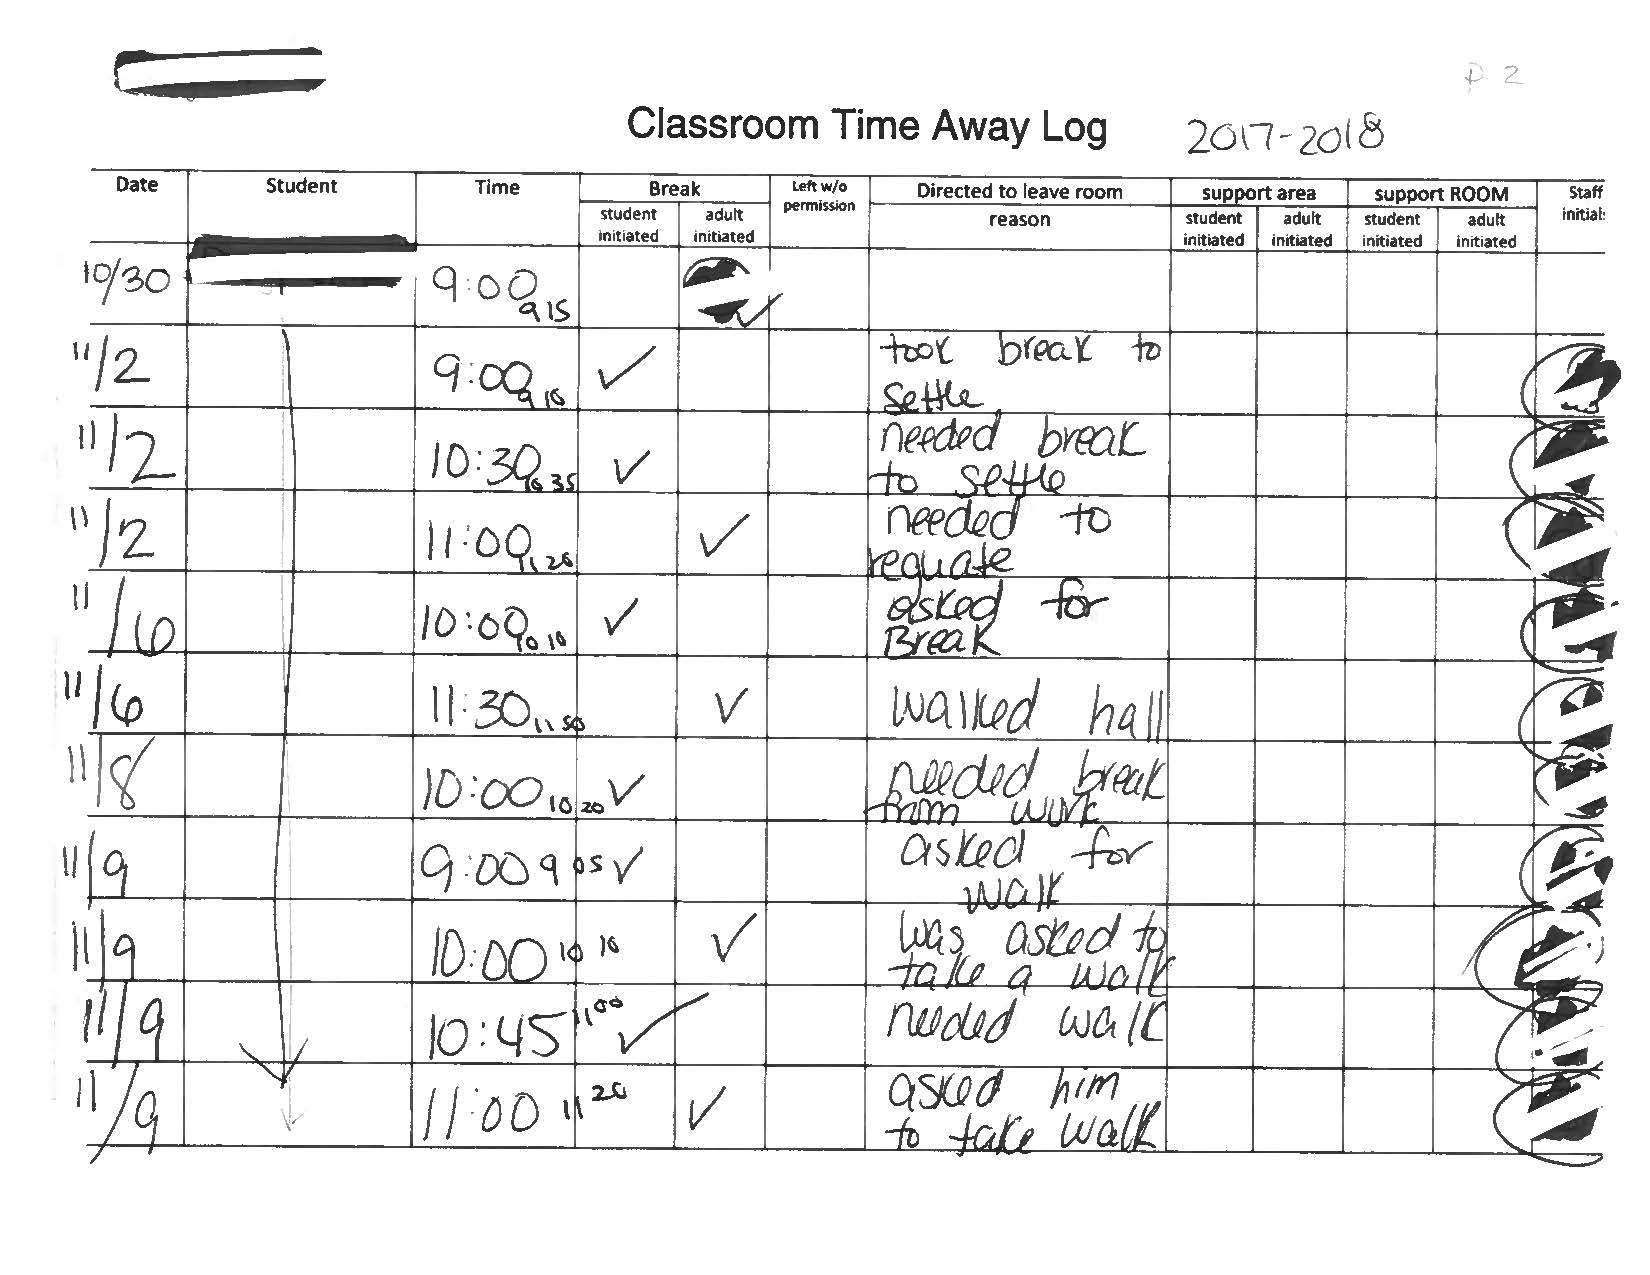 p. 2
Classroom Time Away Log 2017-2018
Date Student Time Break Left w/o permission Directed to leave room support area support ROOM Staff initials
student initiated adult initiated reason student initiated adult initiated student initiated adult initiated
10/30 9:00 9 15 ✓
11/2 9:00 9 10 ✓ took break to
settle
11/2 10:30 10 35 ✓ needed break
to settle
11/2 11:00 11 20 ✓ needed to
reguate
11/6 10:00 10 10 ✓ asked for
Break
11/6 11:30 11 50 ✓ walked hall
11/8 10:00 10 20 ✓ needed break
from work
11/9 9:00 9 05 ✓ asked for
walk
11/9 10:00 10 10 ✓ was asked to
take a walk
11/9 10:45 11 00 ✓ needed walk
11/9 11:00 11 20 ✓ asked him
to take walk